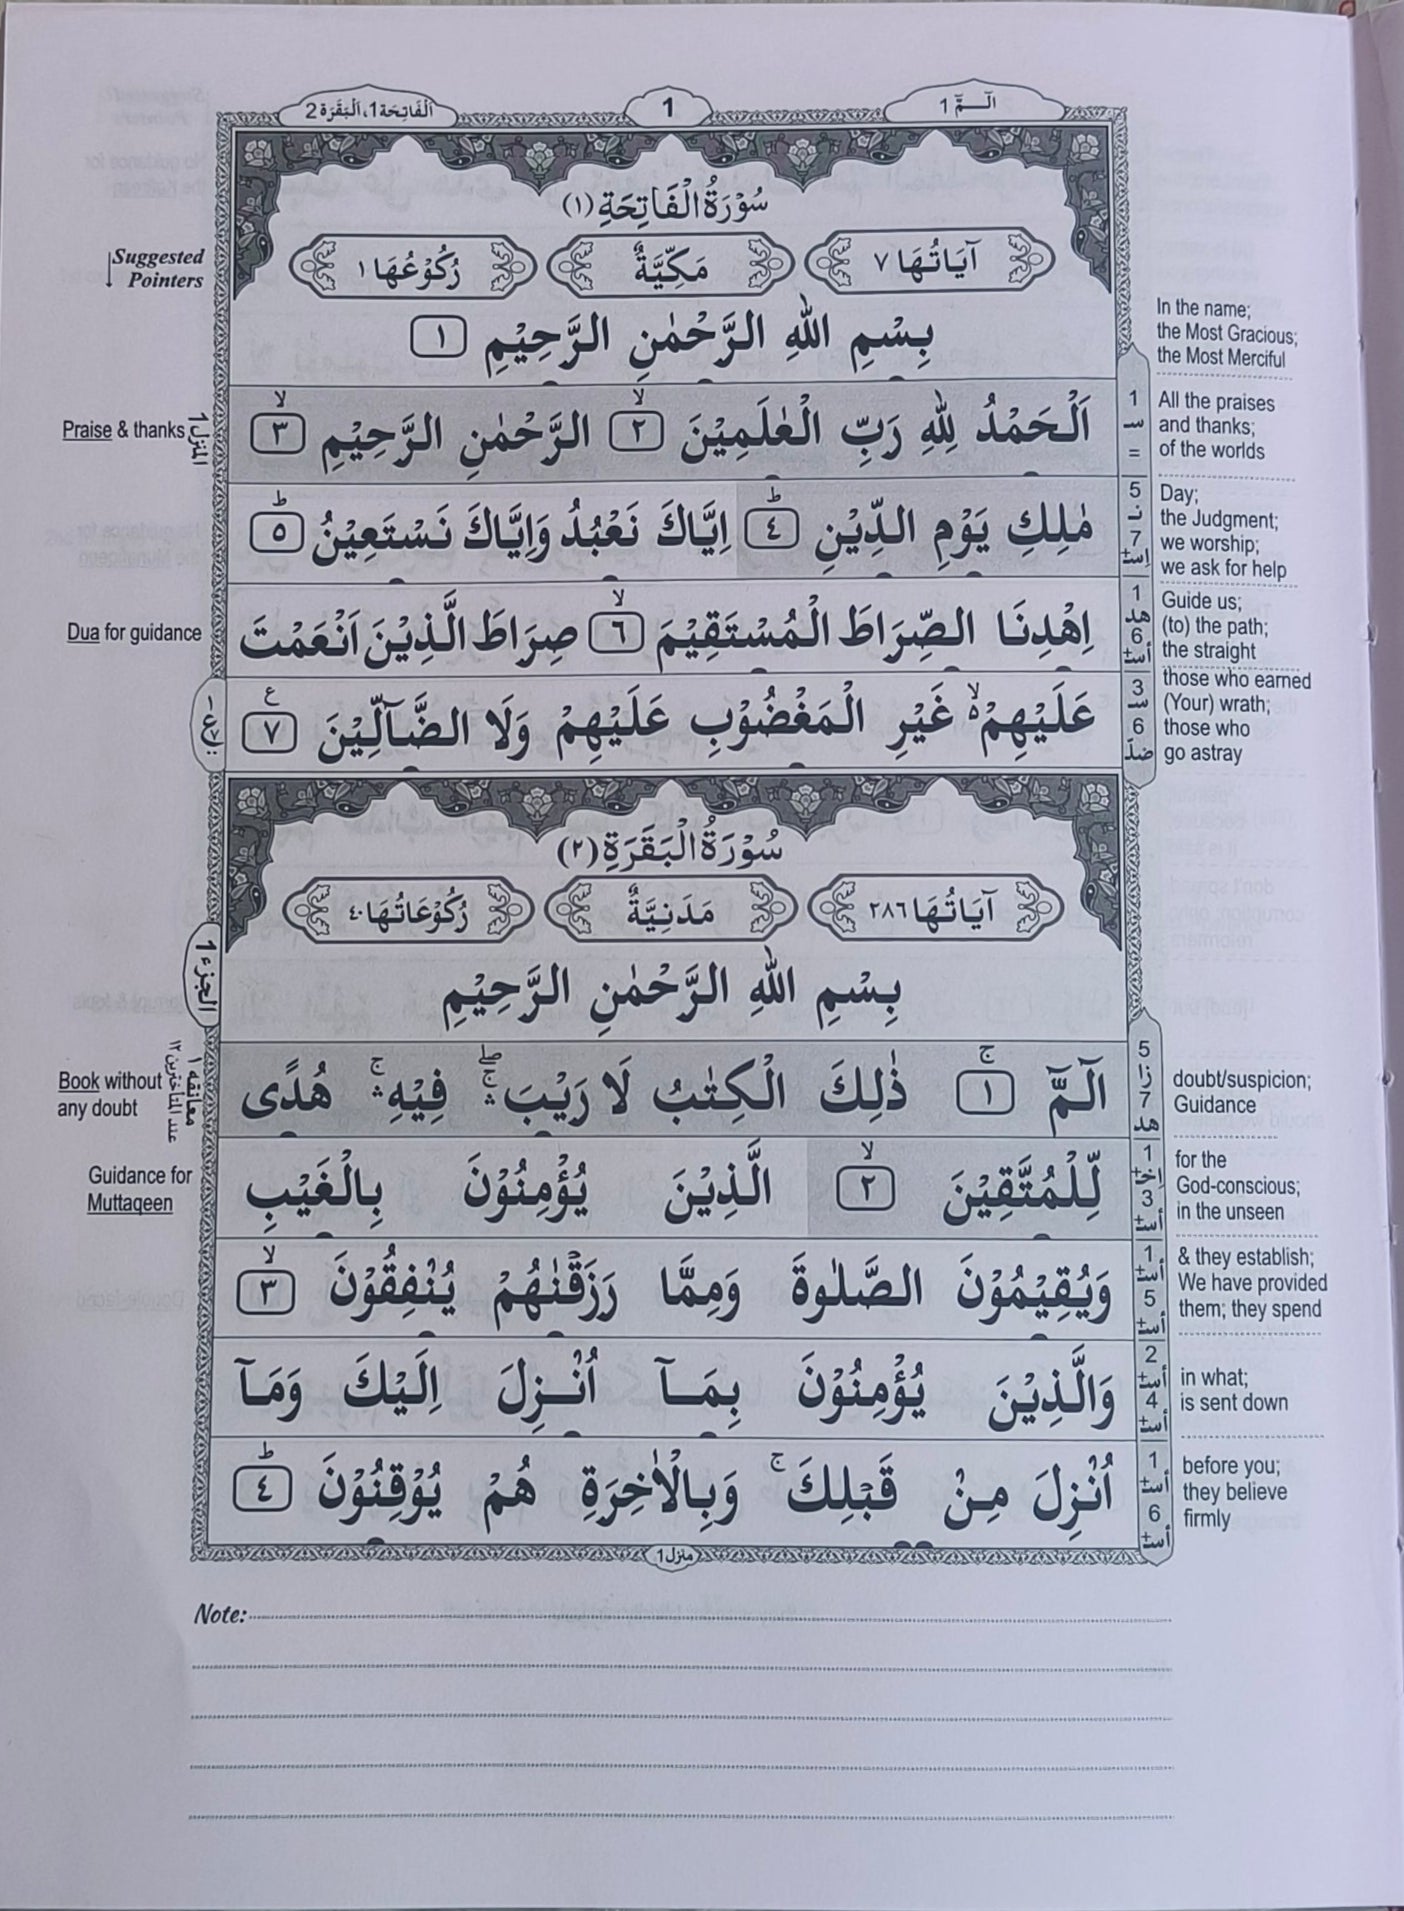 الٓـمّٓ 1
1
اَلْفَاتِحَة 1، اَلْبَقَرَة 2
سُوْرَةُ الْفَاتِحَةِ (١)
آيَاتُهَا ٧
مَكِّيَّةٌ
رُكُوْعُهَا ١
Suggested
Pointers
بِسْمِ اللّٰهِ الرَّحْمٰنِ الرَّحِيْمِ ١
In the name;
the Most Gracious;
the Most Merciful
اَلْحَمْدُ لِلّٰهِ رَبِّ الْعٰلَمِيْنَ ٢ۙ الرَّحْمٰنِ الرَّحِيْمِ ٣ۙ
1
سـ
=
All the praises
and thanks;
of the worlds
Praise & thanks
المنزل 1
مٰلِكِ يَوْمِ الدِّيْنِ ٤ؕ اِيَّاكَ نَعْبُدُ وَاِيَّاكَ نَسْتَعِيْنُ ٥ؕ
5
نـ
7
اسـ+
Day;
the Judgment;
we worship;
we ask for help
اِهْدِنَا الصِّرَاطَ الْمُسْتَقِيْمَ ٦ۙ صِرَاطَ الَّذِيْنَ اَنْعَمْتَ
1
هد
6
أسـ+
Guide us;
(to) the path;
the straight
Dua for guidance
عَلَيْهِمْ ۙ۬ غَيْرِ الْمَغْضُوْبِ عَلَيْهِمْ وَلَا الضَّآلِّيْنَ ٧ ع
3
سـ
6
ضلّ
those who earned
(Your) wrath;
those who
go astray
سُوْرَةُ الْبَقَرَةِ (٢)
آيَاتُهَا ٢٨٦
مَدَنِيَّةٌ
رُكُوْعَاتُهَا ٤٠
الجزء 1
بِسْمِ اللّٰهِ الرَّحْمٰنِ الرَّحِيْمِ
الٓمّٓ ١ۚ ذٰلِكَ الْكِتٰبُ لَا رَيْبَ ۛۖۚ فِيْهِ ۛۚ هُدًى
5
زا
7
هد
doubt/suspicion;
Guidance
Book without
any doubt
معانقه ١
عند المتأخرين ١٢
لِّلْمُتَّقِيْنَ ٢ۙ الَّذِيْنَ يُؤْمِنُوْنَ بِالْغَيْبِ
1
إخـ+
3
أسـ+
for the
God-conscious;
in the unseen
Guidance for
Muttaqeen
وَيُقِيْمُوْنَ الصَّلٰوةَ وَمِمَّا رَزَقْنٰهُمْ يُنْفِقُوْنَ ٣ۙ
1
أسـ+
5
أسـ+
& they establish;
We have provided
them; they spend
وَالَّذِيْنَ يُؤْمِنُوْنَ بِمَـآ اُنْـزِلَ اِلَيْكَ وَمَـآ
2
أسـ+
4
أسـ+
in what;
is sent down
اُنْزِلَ مِنْ قَبْلِكَ ۚ وَبِالْاٰخِرَةِ هُمْ يُوْقِنُوْنَ ٤ؕ
1
أسـ+
6
أسـ+
before you;
they believe
firmly
منزل 1
Note: